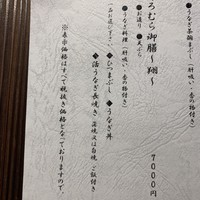 うなぎ茶漬まぶし（肝吸い・香の物付き）
ろむら御膳～翔～　７０００円
・お造り　・天ぷら
・うなぎ料理（肝吸い・香の物付き）
◆ひつまぶし　◆うなぎ丼
◆蒲うなぎ長焼き　蒲焼又は白焼、ご飯付き
※表示価格はすべて税抜き価格となっておりますので、